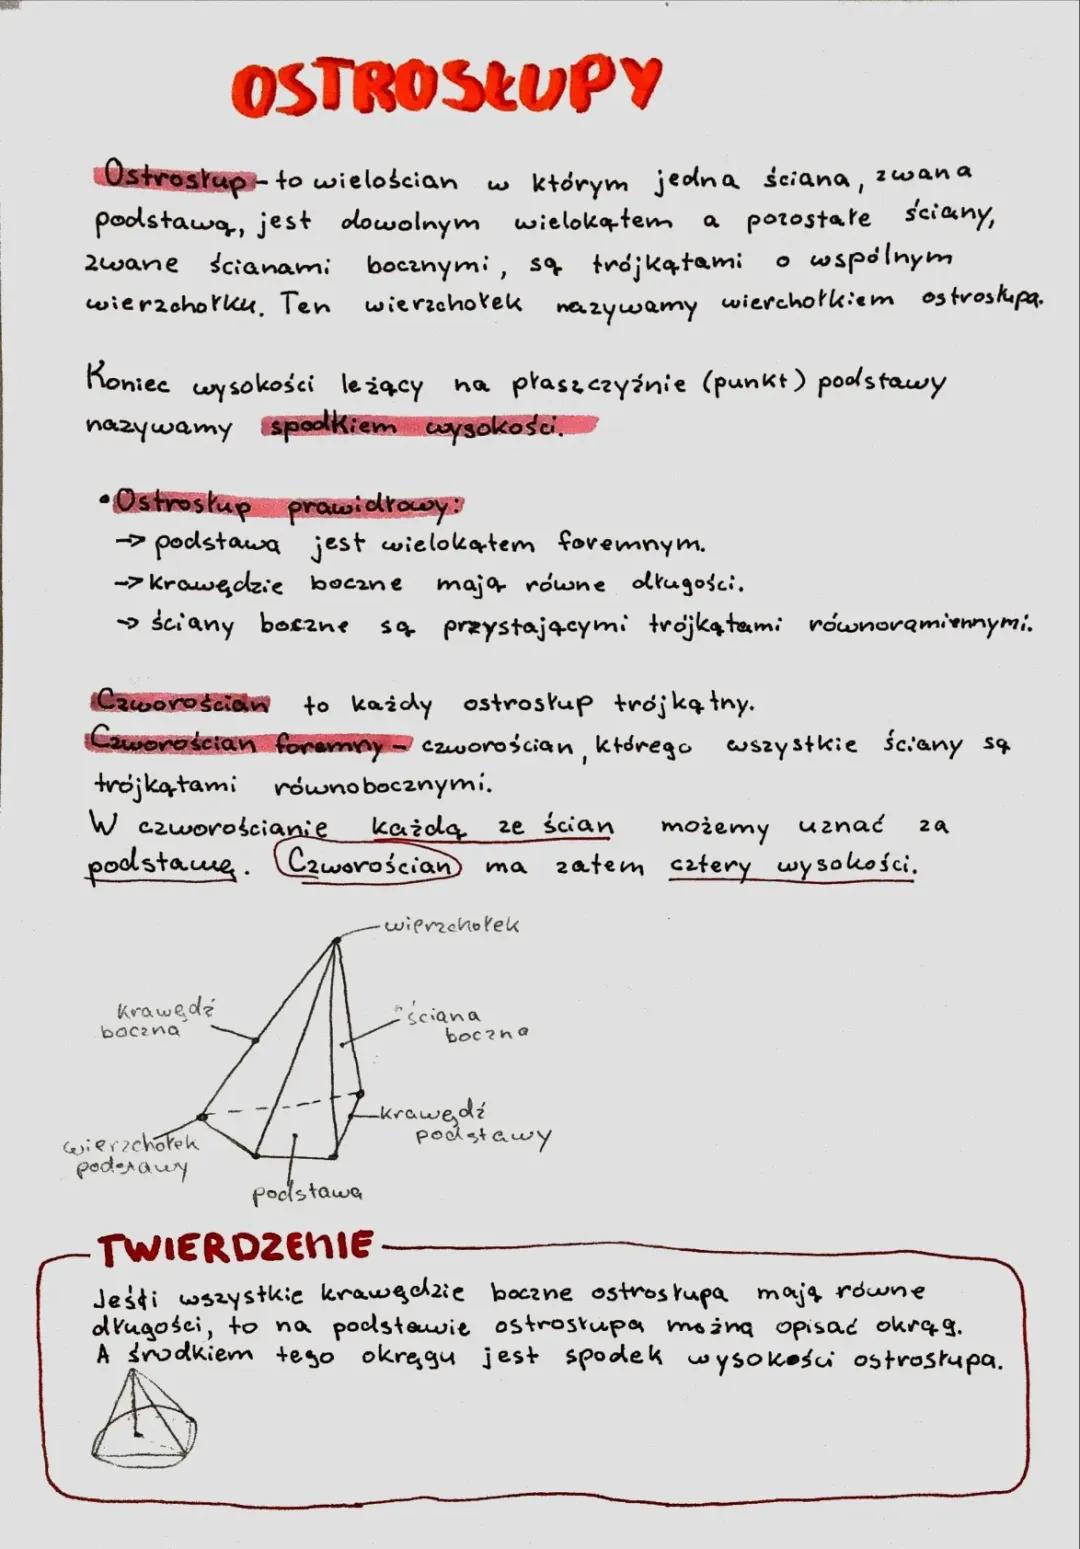 OSTROSŁUPY
Ostrosłup - to wielościan w którym jedna ściana, zwana
podstawą, jest dowolnym wielokątem a pozostałe ściany,
zwane ścianami bocznymi, są trójkątami o wspólnym
wierzchołku. Ten wierzchołek nazywamy wierchołkiem ostrosłupa.
Koniec wysokości leżący na płaszczyźnie (punkt) podstawy
nazywamy spodkiem wysokości.
• Ostrosłup prawidłowy:
-> podstawa jest wielokątem foremnym.
-> krawędzie boczne mają równe długości.
-> ściany boczne są przystającymi trójkątami równoramiennymi.
Czworościan to każdy ostrosłup trójkątny.
Czworościan foremny - czworościan, którego wszystkie ściany są
trójkątami równobocznymi.
W czworościanie każdą ze ścian możemy uznać za
podstawę. Czworościan ma zatem cztery wysokości.
wierzchołek
krawędź
boczna
ściana
boczna
krawędź
podstawy
wierzchołek
podstawy
podstawa
TWIERDZENIE
Jeśli wszystkie krawędzie boczne ostrosłupa mają równe
długości, to na podstawie ostrosłupa można opisać okrąg.
A środkiem tego okręgu jest spodek wysokości ostrosłupa.